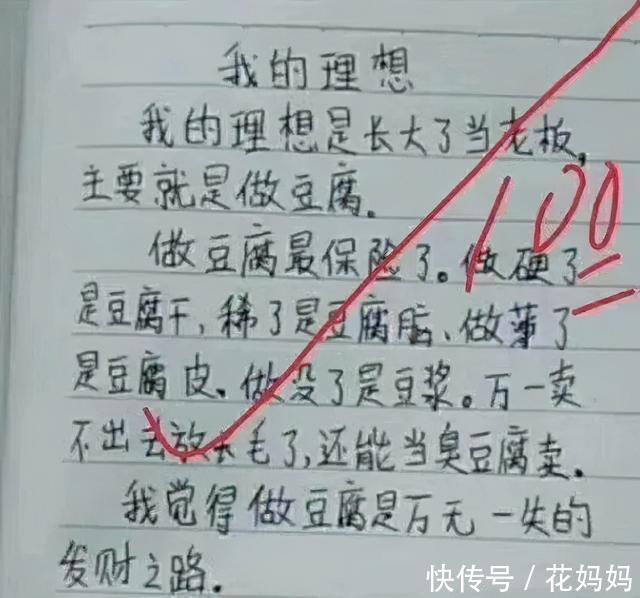 我的理想
我的理想是长大了当老板,
主要就是做豆腐。
100
做豆腐最保险了。做硬了
是豆腐干,稀了是豆腐脑、做薄了
是豆腐皮、做没了是豆浆。万一卖
不出去放长毛了,还能当臭豆腐卖。
我觉得做豆腐是万无一失的
发财之路。
快传号 / 花妈妈